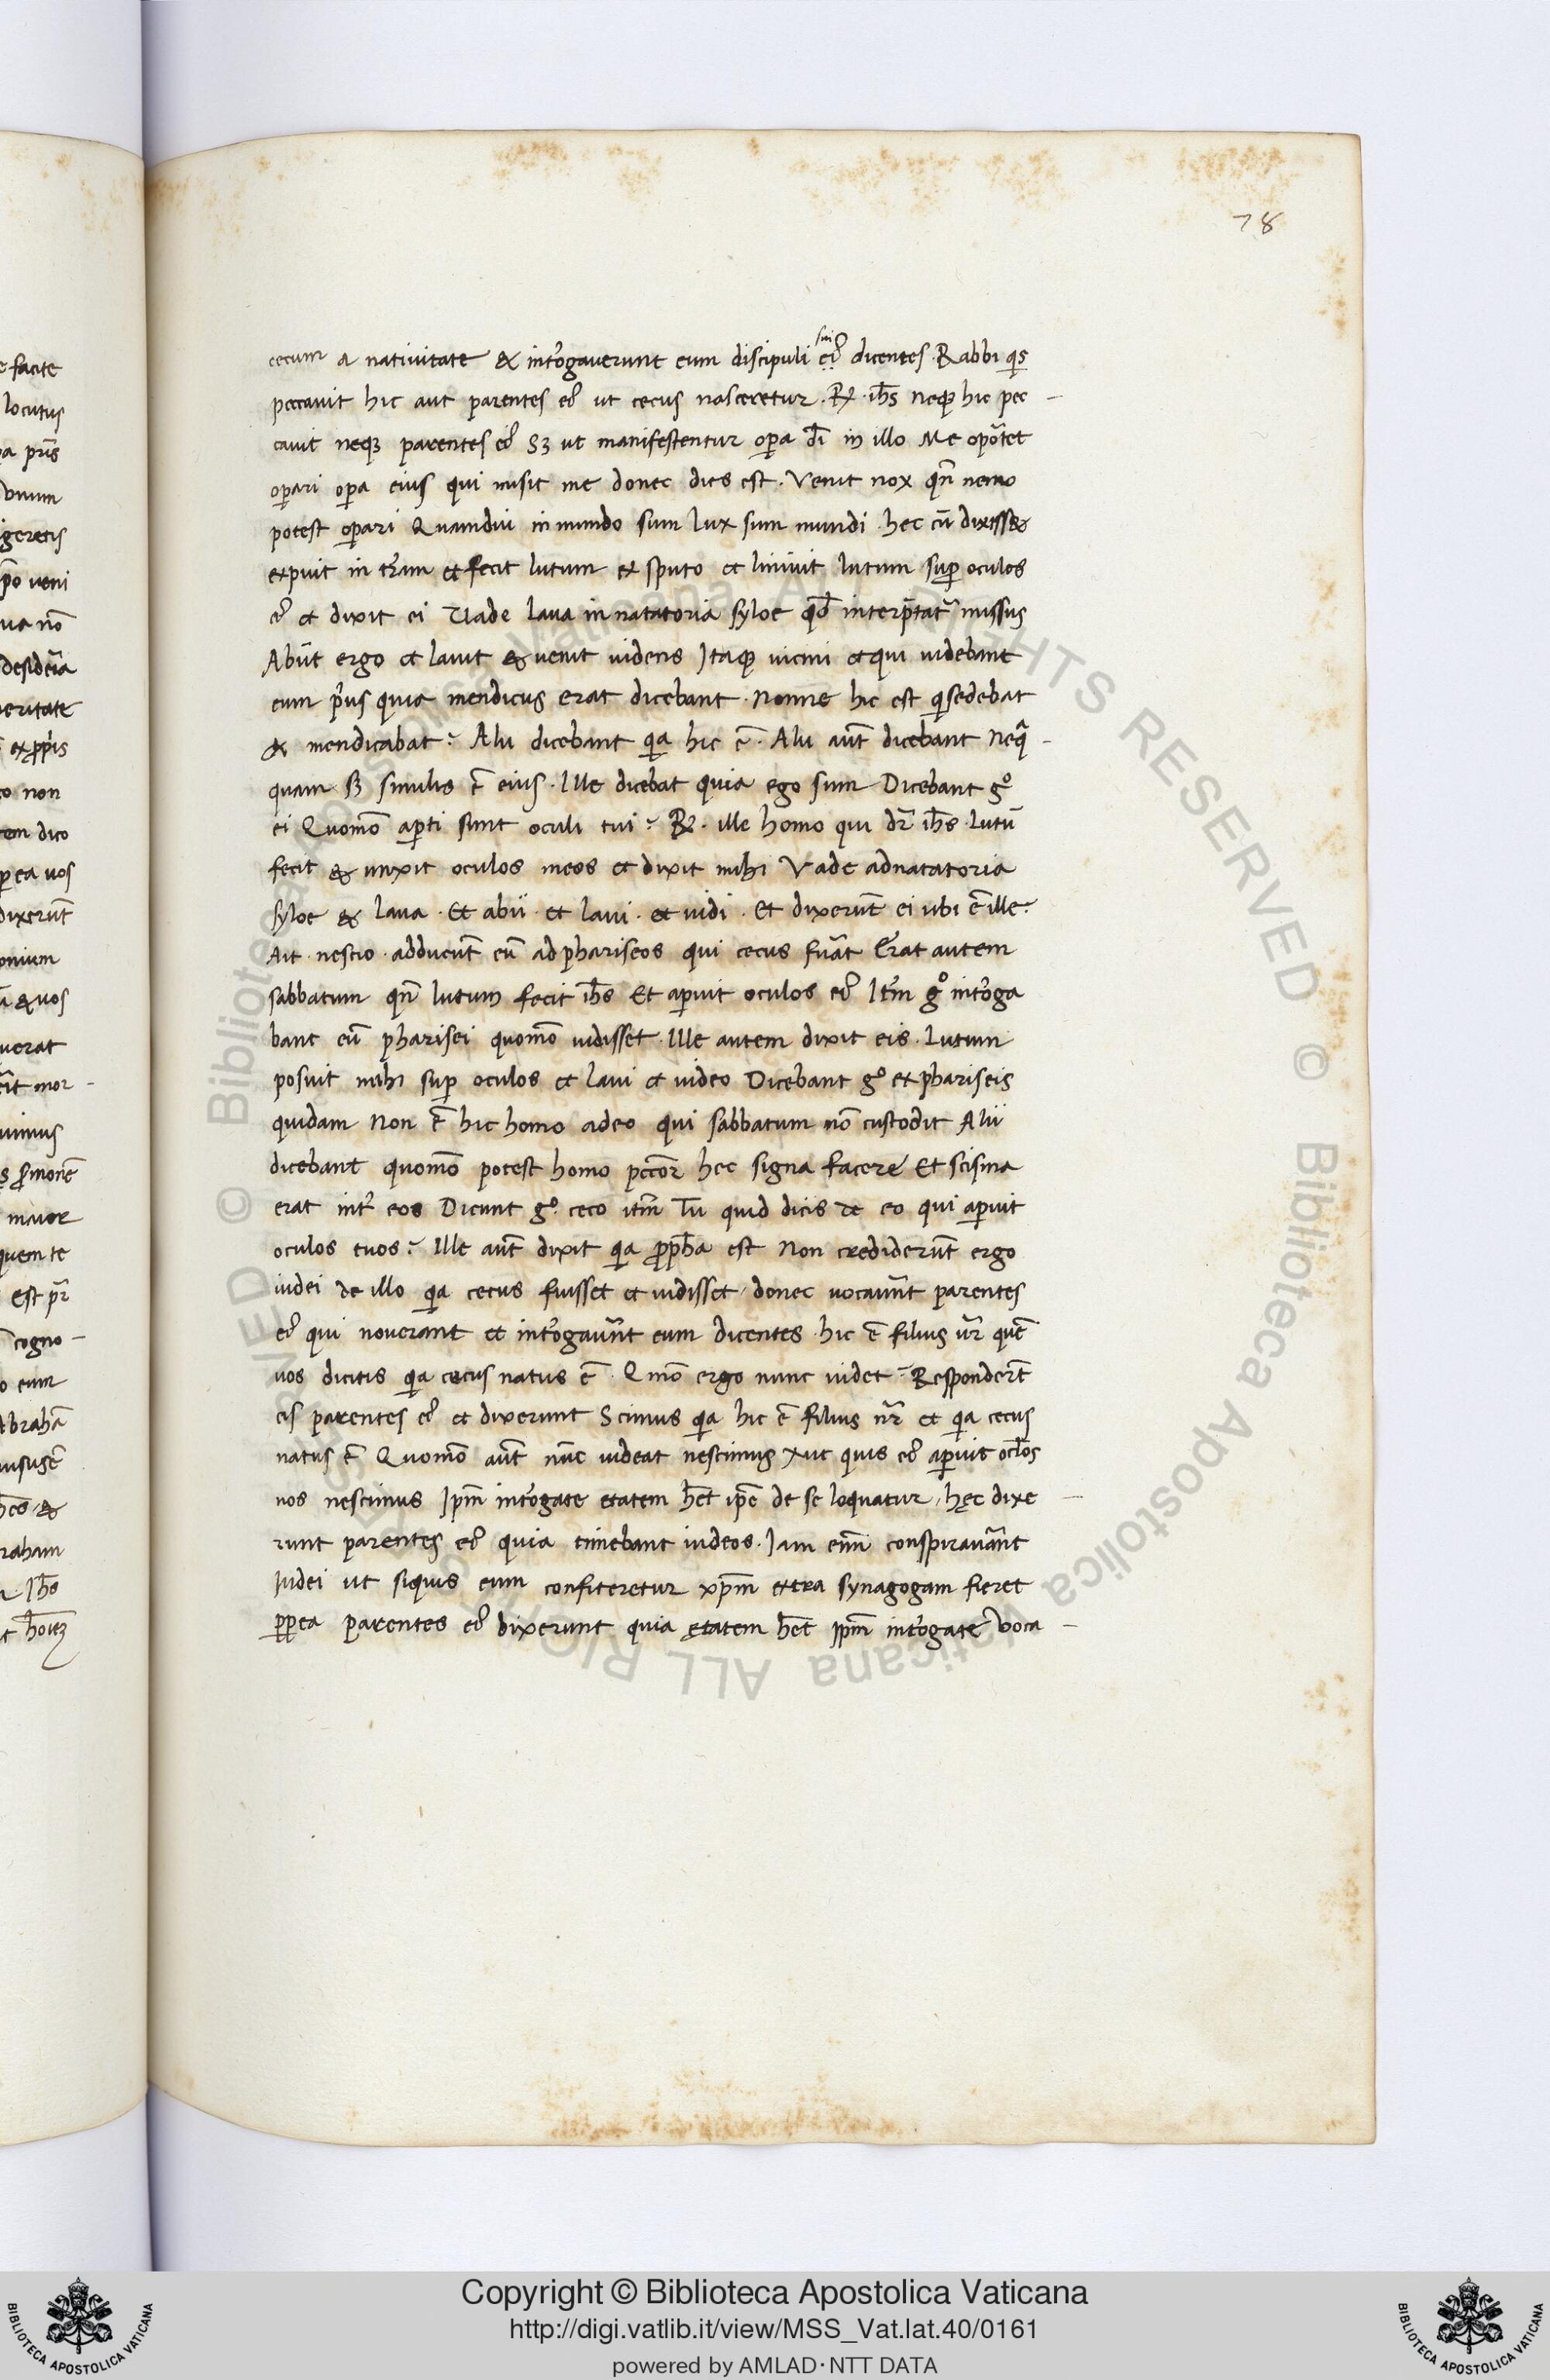 78
cecum a nativitate & int̃rogaverunt eum discipuli sui ei⁹ dicentes. Rabbi qͥs
peccavit hic aut parentes ei⁹ ut cecus nasceretur. R̷. ih̃s neqꝫ hic pec-
cavit neqꝫ parentes ei⁹ Sꝫ ut manifestentur oꝑa dī in illo Me oportet
oꝑari oꝑa eius qui misit me donec dies est. Venit nox qñ nemo
potest oꝑari Quamdiu in mundo sum lux sum mundi. hec cū dixiss&
expuit in t̃ram et fecit lutum ex sputo et linivit lutum suꝑ oculos
ei⁹ et dixit ei Vade lava in natatoria syloe qd̃ interp̃tatr̃ missus
Abiit ergo et lavit & venit videns Itaqꝫ vicini et qui videbant
eum pͥus quia mendicus erat dicebant. Nonne hic est qͥ sedebat
& mendicabat? Alii dicebant qia hic ē. Alii aūt dicebant Neqͣ-
quam sꝫ similis ē eius. Ille dicebat quia ego sum Dicebant gº
ei Quomō aꝑti sunt oculi tui? R̷. ille homo qui dr̃ ih̃s. Lutū
fecit & unxit oculos meos et dixit mihi Vade ad natatoria
syloe & lava. Et abii. et lavi. et vidi. Et dixerūt ei ubi ē ille?
Ait. nescio. adducūt eū ad phariseos qui cecus fuãt Erat autem
sabbatum qñ lutum fecit ih̃s Et aꝑuit oculos ei⁹ Itm̃ gº int̃roga
bant eū pharisei quomō vidisset. Ille autem dixit eis. Lutum
posuit mihi suꝑ oculos et lavi et video Dicebant gº ex phariseis
quidam Non ē hic homo a deo qui sabbatum nō custodit Alii
dicebant quomō potest homo pccōr hec signa facere Et scisma
erat int̃ eos Dicunt gº. ceco itm̃ Tu quid dicis de eo qui aꝑuit
oculos tuos? Ille aūt dixit qia ꝓph̃a est Non crediderūt ergo
iudei de illo qia cecus fuisset et vidisset donec vocavũnt parentes
ei⁹ qui noverant et int̃rogavũnt eum dicentes. hic ē filius vr̃ quē
vos dicitis qia cecus natus ē. Qmō ergo nunc videt? Respondert̃
eis parentes ei⁹ et dixerunt Scimus qia hic ē filius nr̃ et qia cecus
natus ē Quomō aūt nūc videat nescimus Aut quis ei⁹ aꝑuit ocl̃os
nos nescimus Ip̃m int̃rogate etatem h̃et ip̃e de se loquatur. hęc dixe-
runt parentes ei⁹ quia timebant iudeos. Iam em̃ conspiravãnt
Iudei ut siquis eum confiteretur xp̃m extra synagogam fieret
ꝓꝑea parentes ei⁹ dixerunt quia ętatem h̃et Ip̃m int̃rogate Voca-
Copyright © Biblioteca Apostolica Vaticana
http://digi.vatlib.it/view/MSS_Vat.lat.40/0161
powered by AMLAD·NTT DATA